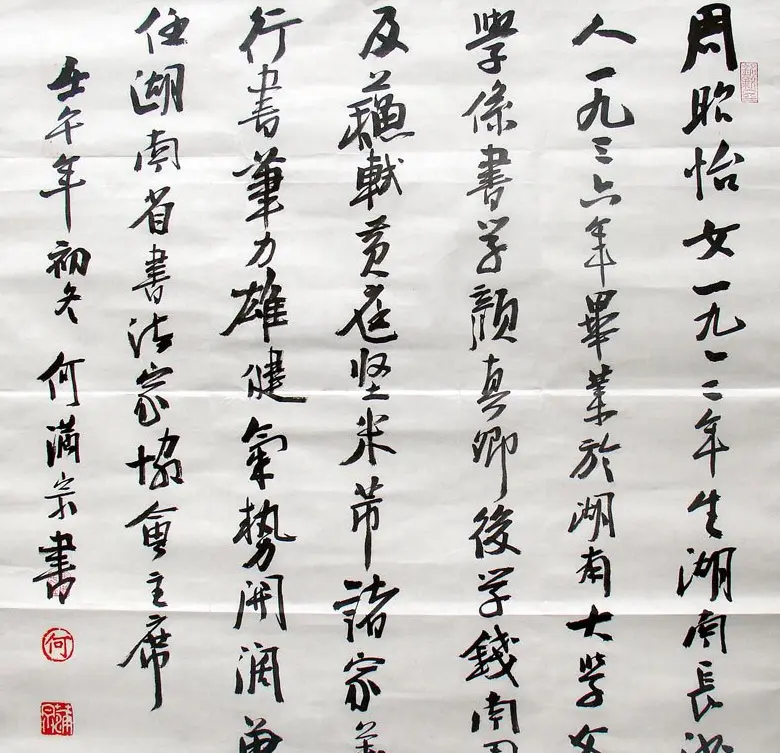 周昭怡女一九一二年生湖南長沙
人一九三六年畢業於湖南大學文
學係書学顏真卿後学錢南園
及蘓軾黄庭坚米芾諸家善
行書筆力雄健氣勢開濶曽
任湖南省書法家協會主席
壬午年初冬何满宗書
何